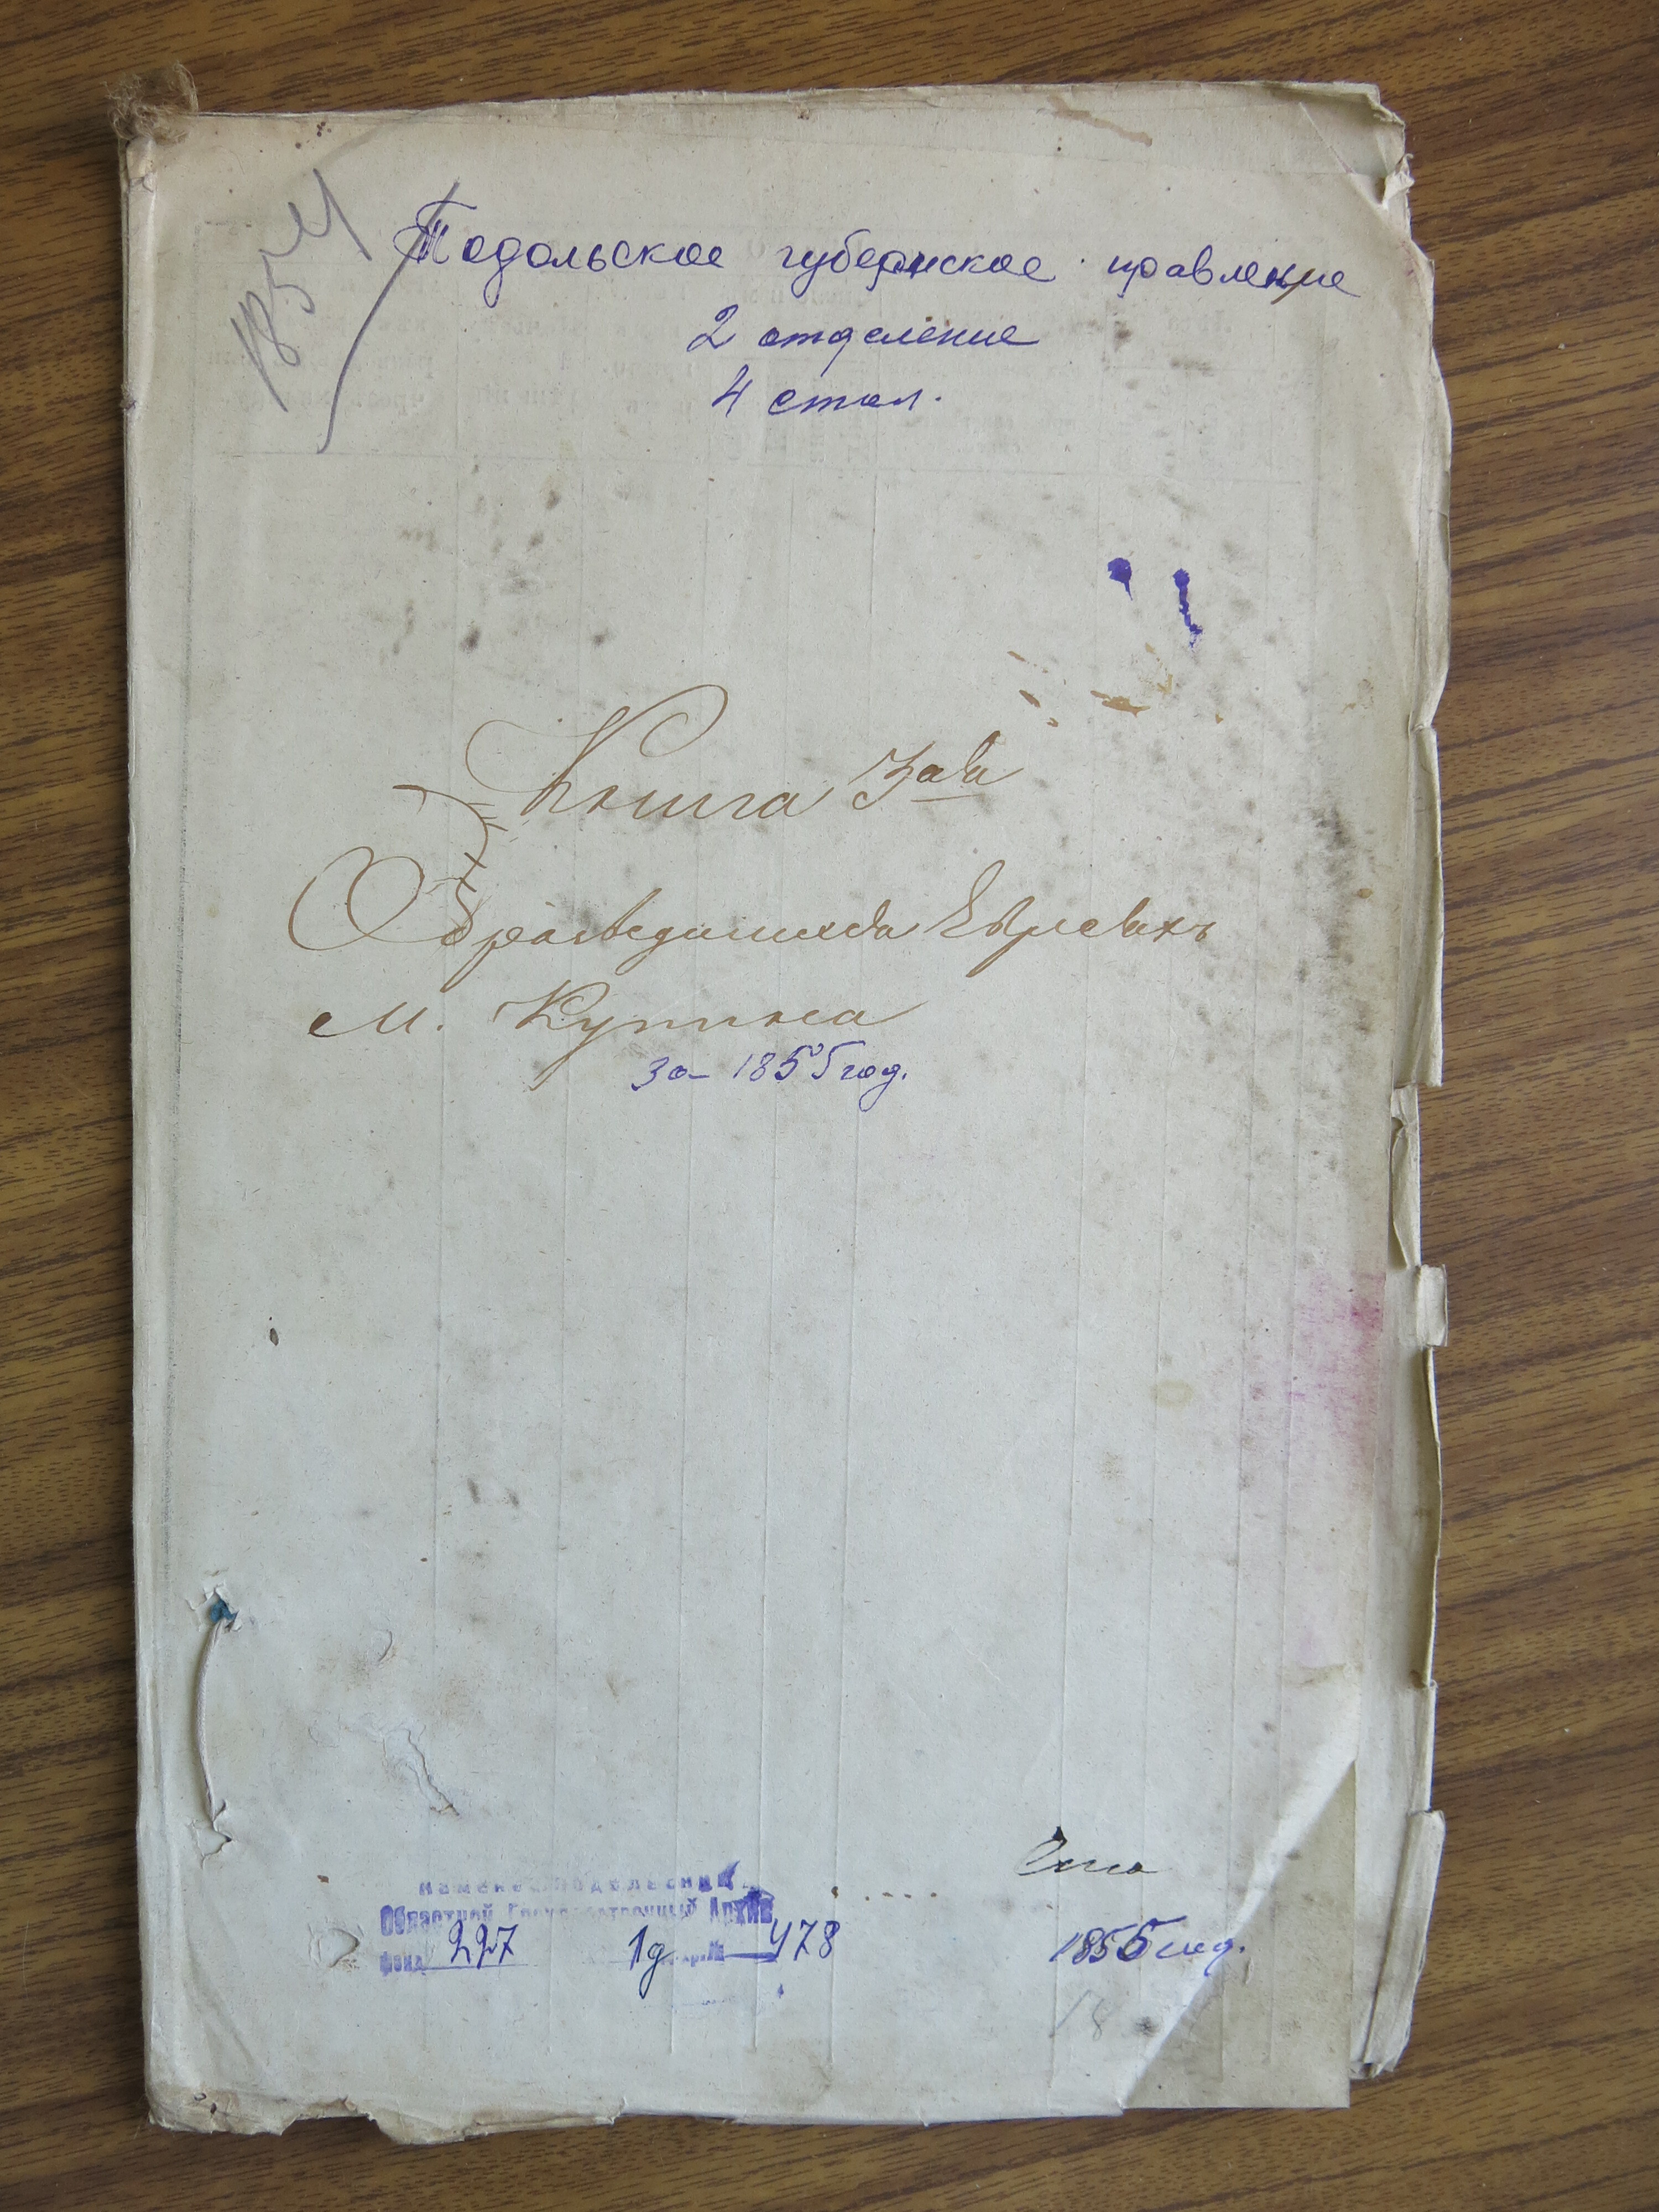 1854
Подольское губернское правление
2 отделение
4 стол.
Книга 3ая
О бракоразводившихся Евреяхъ
М. Купина
за 1855 год.
Каменец-Подольский
Областной Государственный Архив
фонд 227 1д № 478
1855 год.
18